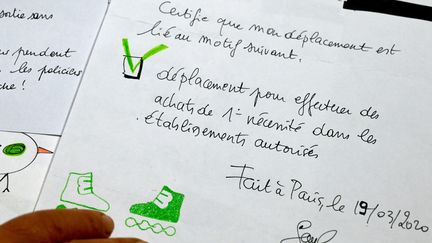 sortie sans
pendant
les policiers
Certifie que mon déplacement est
lié au motif suivant.
déplacement pour effectuer des
achats de 1e nécessité dans les
établissements autorisés
Fait à Paris, le 19/03/2020